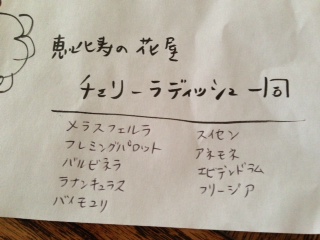 恵比寿の花屋
チェリーラディッシュ一同
メラスフェルラ
フレミングパロット
バルビネラ
ラナンキュラス
バイモユリ
スイセン
アネモネ
エピデンドラム
フリージア